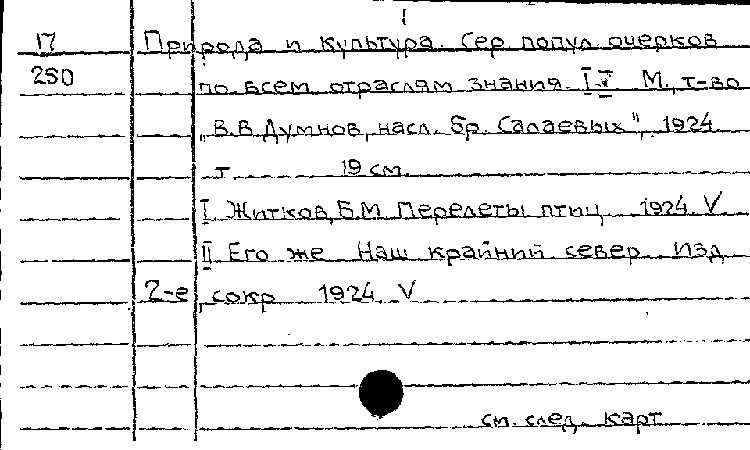 1
17 Природа и культура. Сер. попул. очерков
250 по всем отраслям знания. I-V М., т-во
„В.В. Думнов, насл. бр. Салаевых", 1924
т 19 см.
I Житков, Б.М. Перелеты птиц 1924. V
II Его же Наш крайний север. Изд
2-е, сокр 1924 V
см. след. карт